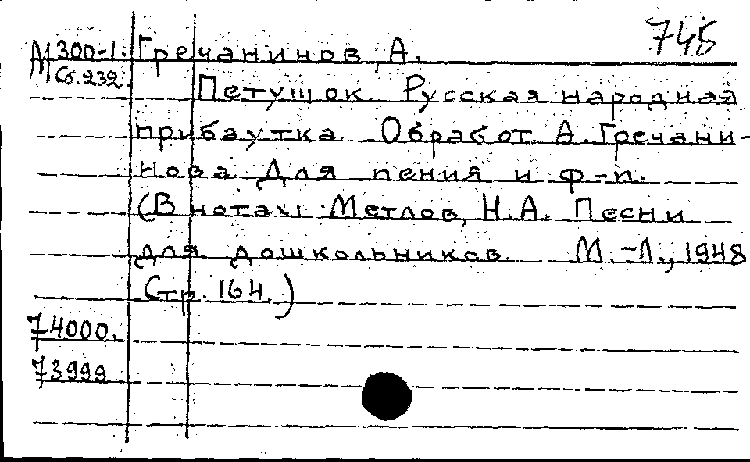 745
М 300-1. Гречанинов, А.
Сб.232. Петушок. Русская народная
прибаутка. Обработ. А. Гречани-
нова Для пения и ф-п.
(В нотах: Метлов, Н.А. Песни
для дошкольников. М.-Л., 1948
Стр. 164.)
74000.
73999